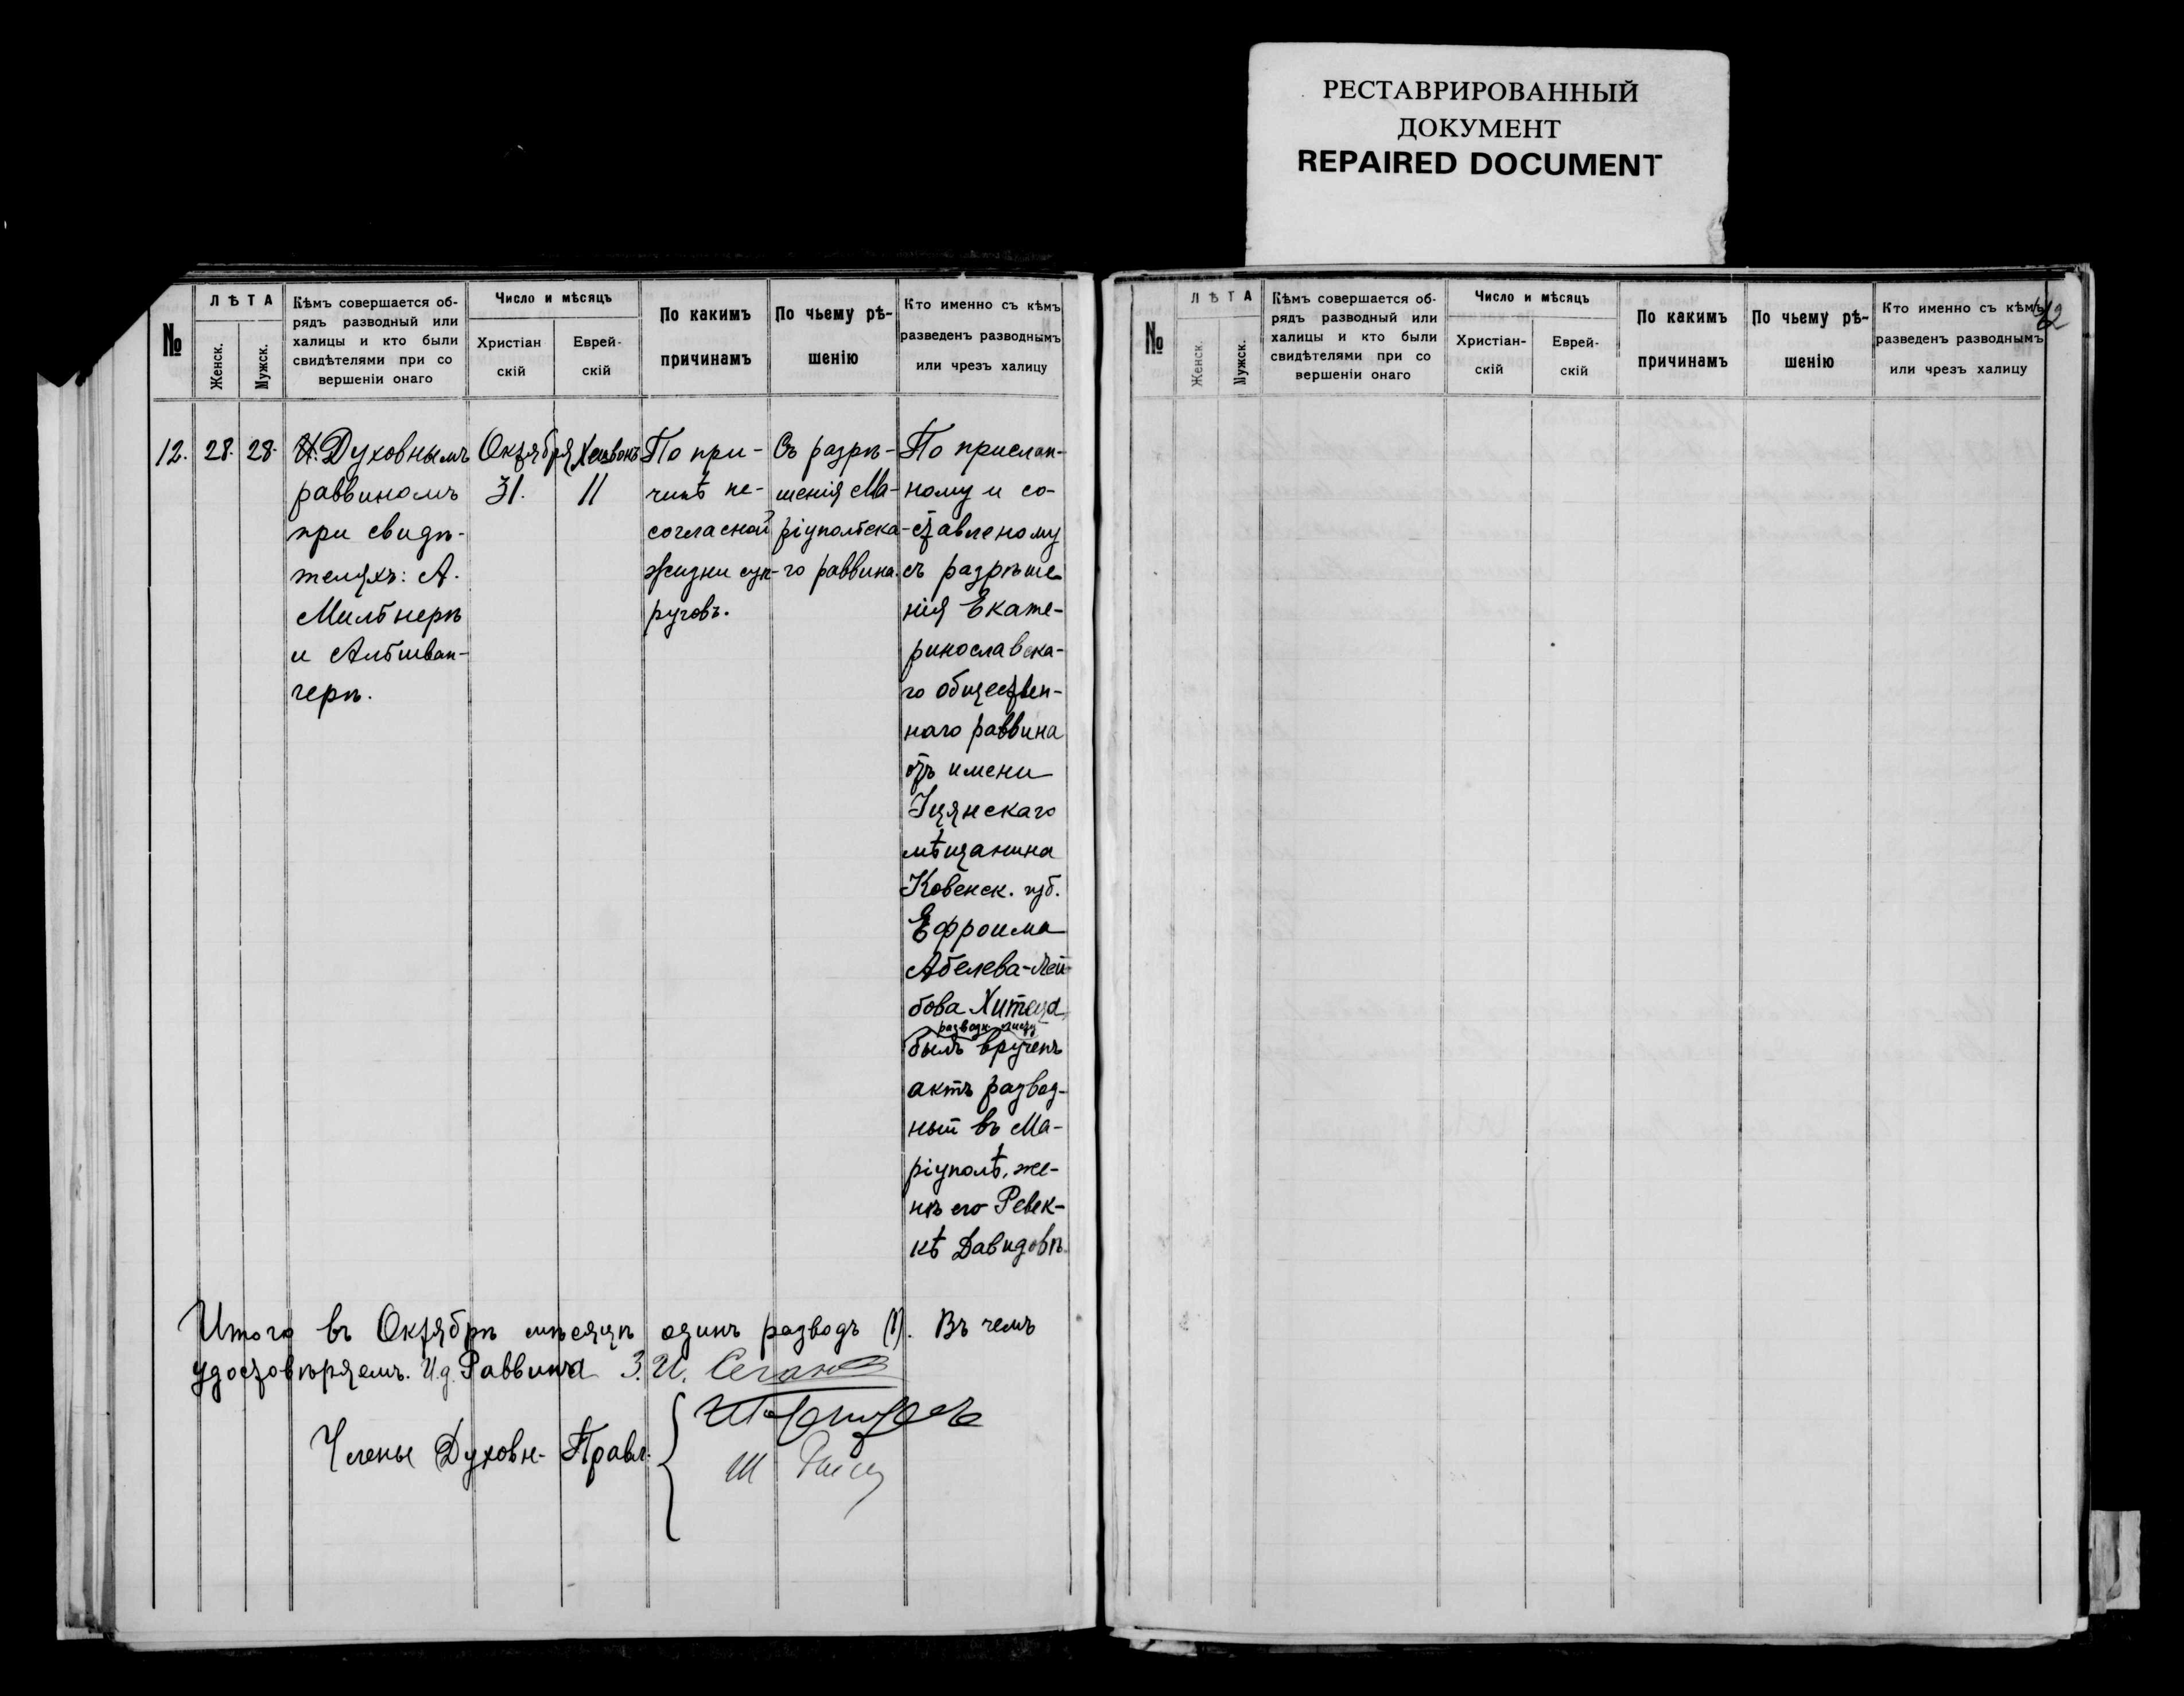 РЕСТАВРИРОВАННЫЙ
ДОКУМЕНТ
REPAIRED DOCUMENT
№
ЛѢТА
Женск.
Мужск.
Кѣмъ совершается об-
рядъ разводный или
халицы и кто были
свидѣтелями при со
вершеніи онаго
Число и мѣсяцъ
Христіан
скій
Еврей-
скій
По какимъ
причинамъ
По чьему рѣ-
шенію
Кто именно съ кѣмъ
разведенъ разводнымъ
или чрезъ халицу
12.
28.
28.
Духовнымъ
раввиномъ
при свидѣ-
теляхъ: А.
Мильнерѣ
и Альтшван-
герѣ.
Октября
31.
Хешвонъ
11
По при-
чинѣ не-
согласной
жизни суп-
руговъ.
Съ разрѣ-
шенія Ма-
ріупольска-
го раввина.
По прислан-
ному и со-
ставленому
съ разрѣше
нія Екате-
ринославска-
го обществен-
наго раввина
отъ имени
мѣщанина
Ковенск. губ.
Ефроима
Абелева-Лей-
бова
былъ врученъ
актъ развод-
ный въ Ма-
ріуполѣ, же-
нѣ его Ревек-
кѣ Давидовѣ
Итого въ Октябрѣ мѣсяцѣ одинъ разводъ (1). Въ чемъ
удостовѣряемъ. И.д. Раввина З. И.
Члены Духовн. Правл.
Ш
№
ЛѢТА
Женск.
Мужск.
Кѣмъ совершается об-
рядъ разводный или
халицы и кто были
свидѣтелями при со
вершеніи онаго
Число и мѣсяцъ
Христіан-
скій
Еврей-
скій
По какимъ
причинамъ
По чьему рѣ-
шенію
Кто именно съ кѣмъ
разведенъ разводнымъ
или чрезъ халицу